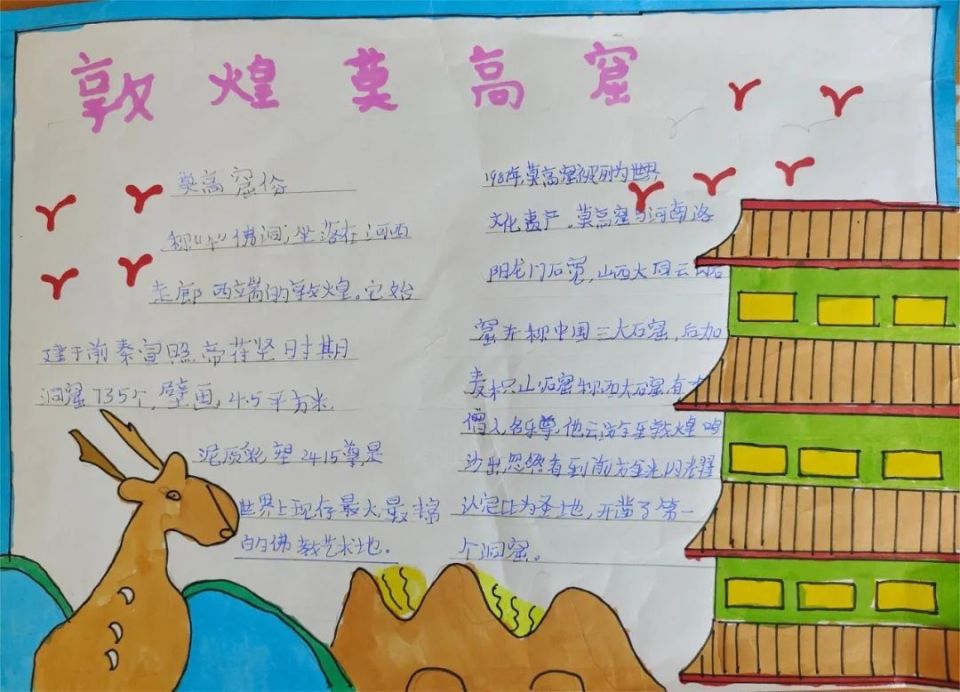 敦煌莫高窟
莫高窟俗
称"千"佛洞,坐落在河西
走廊西端的敦煌。它始
建于前秦宣照帝苻坚时期
洞窟735个,壁画,4.5平方米,
泥质彩塑2415尊是
世界上现存最大最丰富
的佛教艺术地.
1987年,莫高窟被列为世界
文化遗产。莫高窟与河南洛
阳龙门石窟,山西大同云冈石
窟并称中国三大石窟,后加
麦积山石窟称四大石窟有
僧人名乐尊,他云游至敦煌鸣
沙山,忽然看到前方金光闪耀
认定此为圣地,开凿了第一
个洞窟。